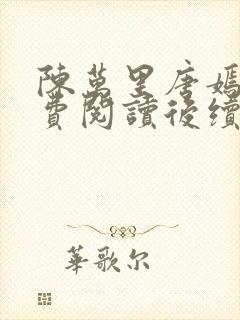 陳萬里唐嫣
費閱讀後續
華歌尔